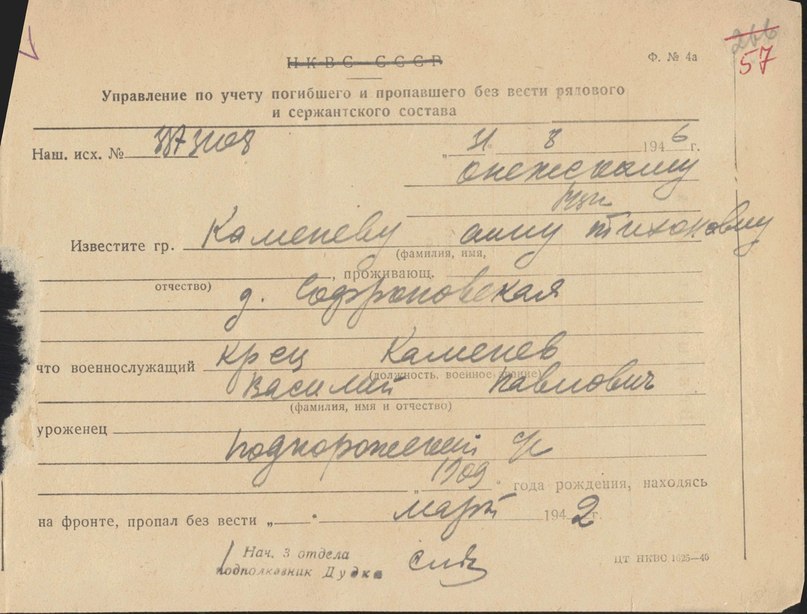 266
57
НКВС СССР
Ф. № 4а
Управление по учету погибшего и пропавшего без вести рядового
и сержантского состава
Наш. исх. №
„31" 8 1946 г.
Онежскому
РВК
Известите гр. Каменеву Анну Тихоновну
(фамилия, имя,
отчество) , проживающ.
д. Софроновская
что военнослужащий кр-ец Каменев
(должность, военное звание)
Василий Павлович
(фамилия, имя и отчество)
уроженец
Подпорожский с/с
„1909" года рождения, находясь
на фронте, пропал без вести „ " март 1942 г.
Нач. 3 отдела
подполковник Дудка
ЦТ НКВС 1625—46